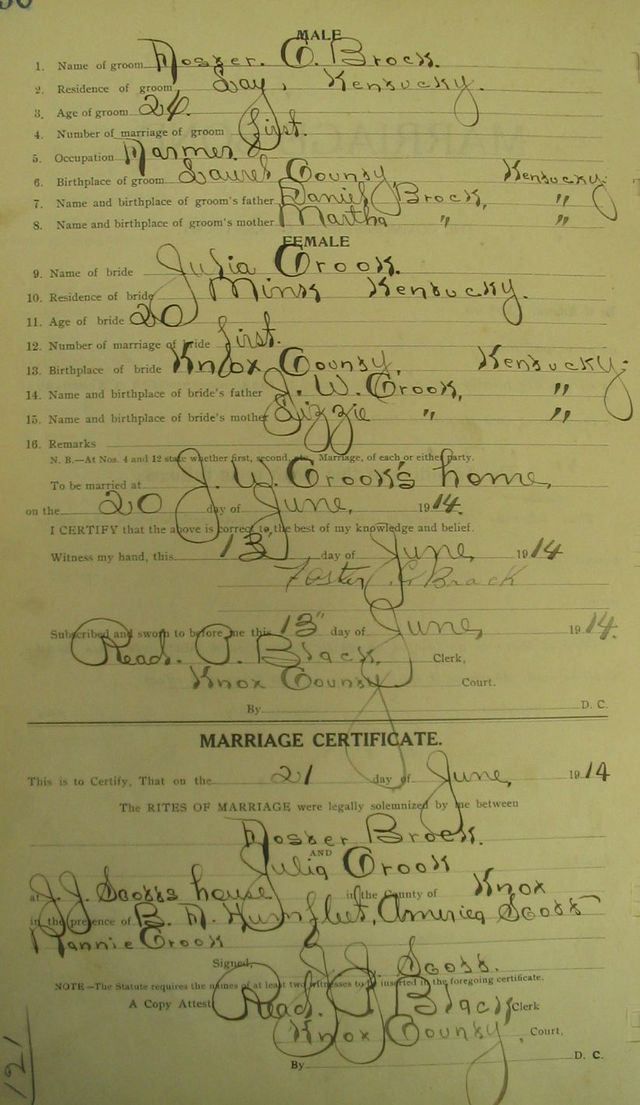 MALE
1. Name of groom Foster. C. Brock.
2. Residence of groom Gay, Kentucky.
3. Age of groom 24
4. Number of marriage of groom first.
5. Occupation Farmer.
6. Birthplace of groom Laurel County, Kentucky.
7. Name and birthplace of groom's father Daniel Brock, "
8. Name and birthplace of groom's mother Martha " "
FEMALE
9. Name of bride Julia Crook.
10. Residence of bride Mink Kentucky.
11. Age of bride 20
12. Number of marriage of bride first.
13. Birthplace of bride Knox County, Kentucky.
14. Name and birthplace of bride's father J. W. Crook, "
15. Name and birthplace of bride's mother Lizzie " "
16. Remarks
N. B.—At Nos. 4 and 12 state whether first, second, etc. Marriage, of each or either party.
To be married at J. W. Crook's home,
on the 20 day of June, 1914.
I CERTIFY that the above is correct to the best of my knowledge and belief.
Witness my hand, this 13 day of June, 1914
Foster C. Brock
Subscribed and sworn to before me this 13" day of June, 1914.
Read. P. Black. Clerk,
Knox County Court.
By D. C.
MARRIAGE CERTIFICATE.
This is to Certify, That on the 21 day of June, 1914
The RITES OF MARRIAGE were legally solemnized by me between
Foster Brock.
AND
Julia Crook
at J. J. Scotts house in the County of Knox
in the presence of B. F. Humfleet, America Scott
Fannie Crook
Signed, J. J. Scott.
NOTE—The Statute requires the names of at least two witnesses to be inserted in the foregoing certificate.
A Copy Attest Read. P. Black, Clerk
Knox County, Court,
By D. C.
121